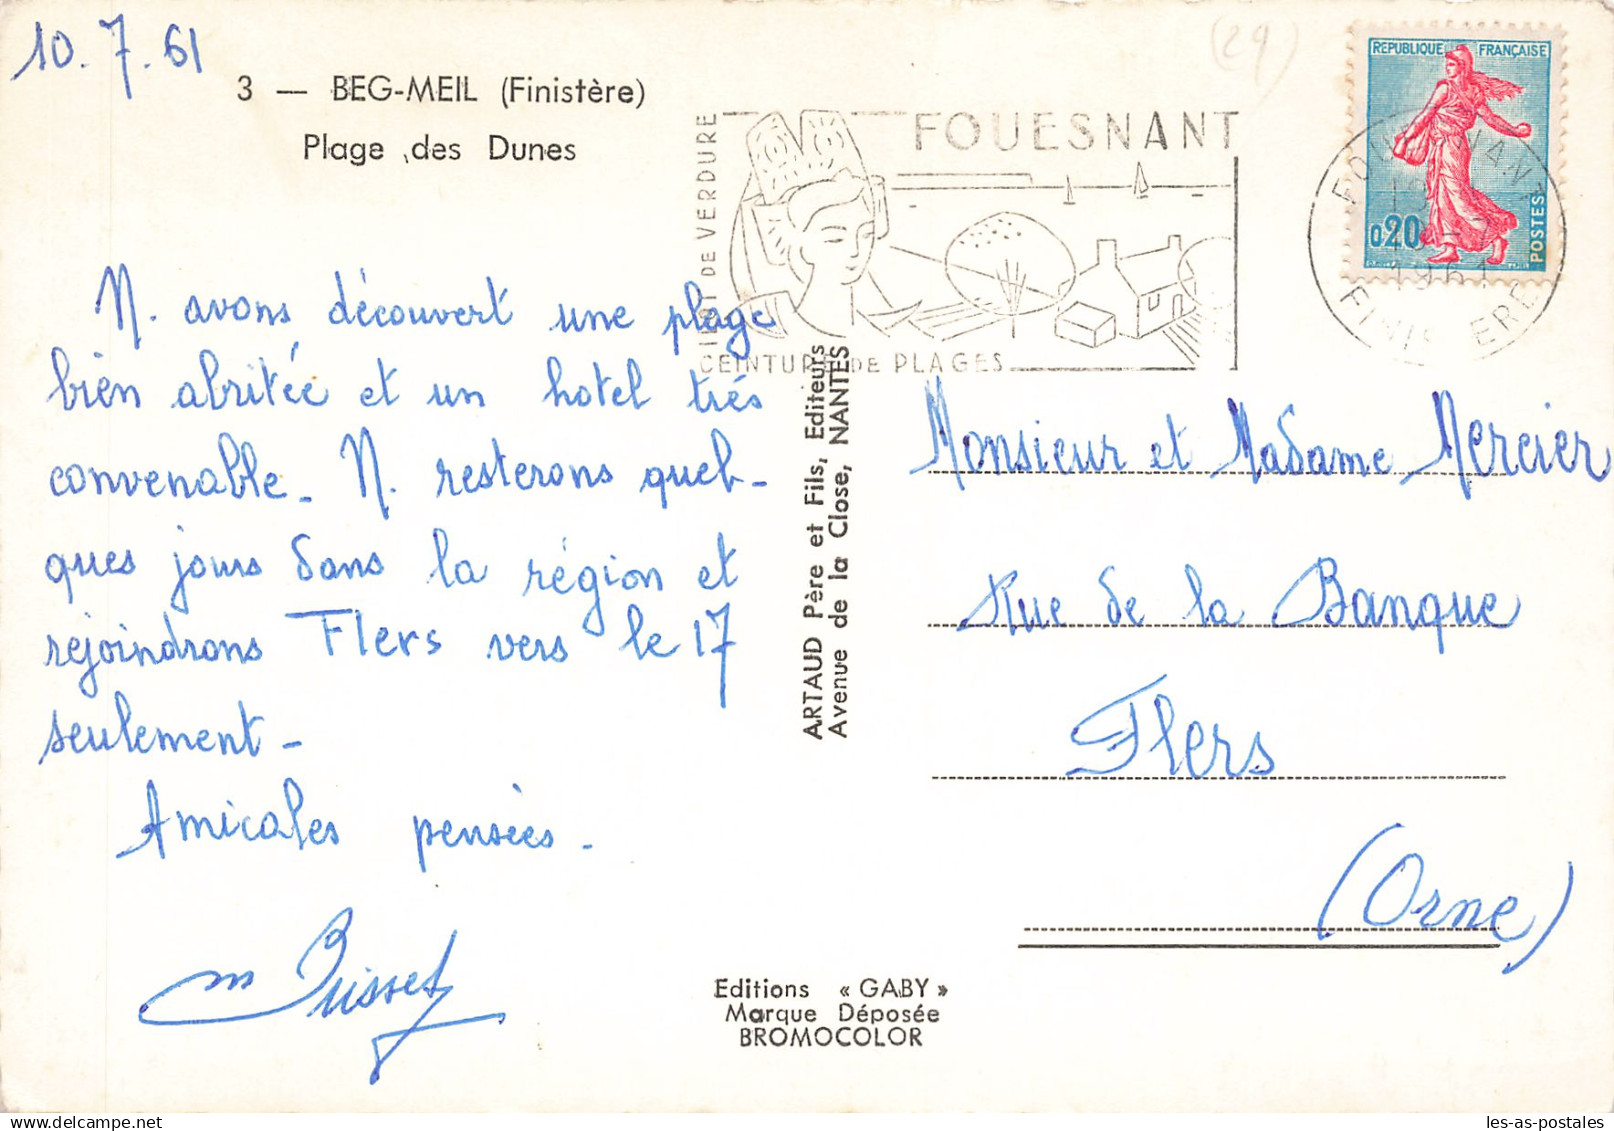 10.7.61
3 — BEG-MEIL (Finistère)
Plage des Dunes
(29)
REPUBLIQUE FRANÇAISE
0,20
POSTES
FOUESNANT
DE VERDURE
CEINTURE DE PLAGES
1961
FINISTERE
N. avons découvert une plage
bien abritée et un hotel trés
convenable - N. resterons quel-
ques jours dans la région et
rejoindrons Flers vers le 17
seulement -
Amicales pensées -
ARTAUD Père et Fils, Editeurs
Avenue de la Close, NANTES
Monsieur et Madame Mercier
Rue de la Banque
Flers
(Orne)
Editions « GABY »
Marque Déposée
BROMOCOLOR
les-as-postales
delcampe.net